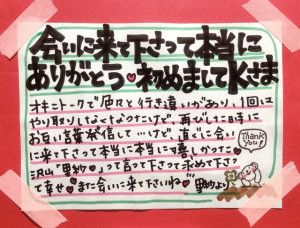 会いに来て下さって本当に
ありがとう♥初めましてKさま
オキニトークで色々と行き違いがあり、1回は
やり取りしなくなったけど、再びした時に
お互い言葉発信して…けど、直ぐに会い
に来て下さって本当に本当に嬉しかった♥
沢山「里紗♥」って言って下さって求めて下さっ
て幸せ♥また会いに来て下さいね♡里紗より
Thank
You!